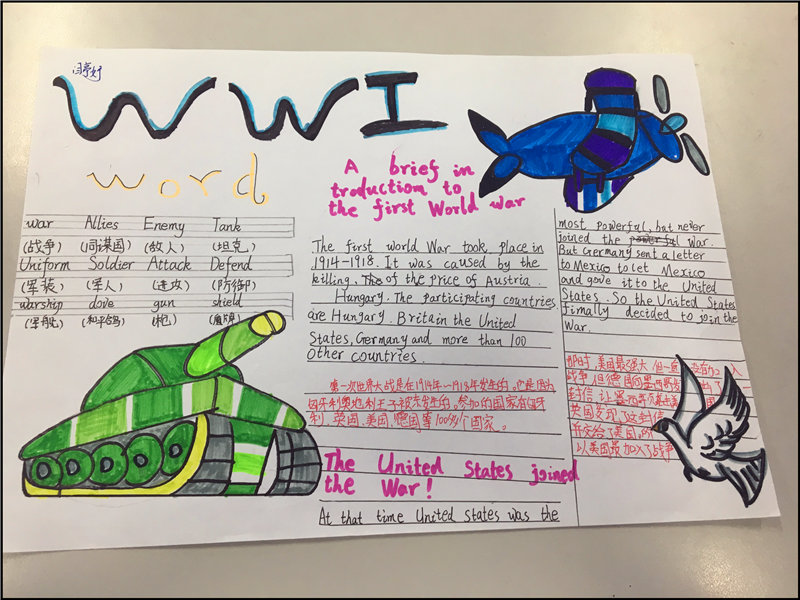 WWI
word
war Allies Enemy Tank
(战争) (同谋国) (敌人) (坦克)
Uniform Soldier Attack Defend
(军装) (军人) (进攻) (防御)
warship dove gun shield
(军舰) (和平鸽) (枪) (盾牌)
A brief in
troduction to
the first World war
The first world War took place in
1914-1918. It was caused by the
killing. The of the price of Austria.
Hungary. The participating countries
are Hungary. Britain the United
States, Germany and more than 100
other countries.
第一次世界大战是在1914年-1918年发生的。它是因为
匈牙利奥地利王子被杀发生的。参加的国家有匈牙
利、英国、美国、德国等100多个国家。
The United States joined
the War!
At that time United States was the
most powerful, but never
joined the powerful war.
But Germany sent a letter
to Mexico to let Mexico
and gove it to the United
States. So the United States
fimally decided to join the
War.
那时,美国最强大,但一直 加入
战争,但德国向墨西哥 了
封信,让墨西哥
英国发现了这封信
并交给了美国,所
以美国最加入了战争